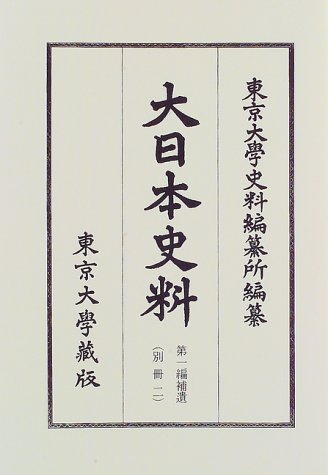 東京大學史料編纂所編纂
大日本史料
第一編補遺
(別冊二)
東京大學藏版